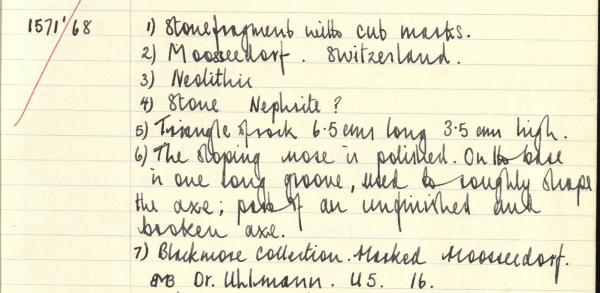 1571'/68 1) Stonefragment with cub marks.
2) Moosseedorf. Switzerland.
3) Neolithic
4) Stone Nephrite?
5) Triangle of rock 6.5 cms long 3.5 cms high.
6) The sloping nose is polished. On the base
is one long groove, used to roughly shape
the axe; part of an unfinished and
broken axe.
7) Blackmore Collection. Marked Moosseedorf.
Dr. Uhlmann. U5. 16.